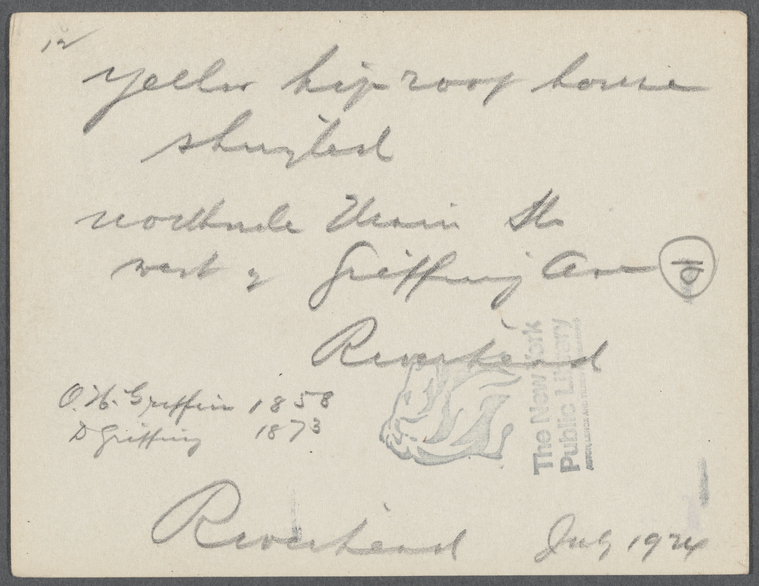 12
Yellow hip roof house
shingled
northside Main St
west of Griffing Ave
10
Riverhead
O. H. Griffin 1858
D Griffing 1873
The New York
Public Library
Riverhead July 1924